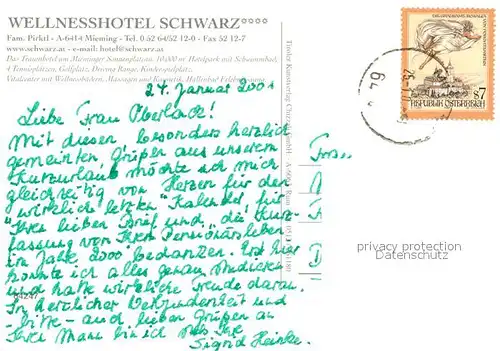 WELLNESSHOTEL SCHWARZ****
Fam. Pirktl - A-6414 Mieming - Tel. 0 52 64/52 12-0 - Fax 52 12-7
www.schwarz.at - e-mail: hotel@schwarz.at
Das Traumhotel am Mieminger Sonnenplateau. 10.000 m² Hotelpark mit Schwimmbad,
4 Tennisplätzen, Golfplatz, Driving Range, Kinderspielplatz.
Vitalcenter mit Wellnessbädern, Massagen und Kosmetik, Hallenbad
24. Januar 2001
Liebe Frau Oberlack!
Mit diesen besonders herzlich
gemeinten Grüßen aus unserem
Kurzurlaub möchte ich mich
gleichzeitig von Herzen für den
"wirklich letzten" Kalender, für
Ihren lieben Brief und "die Kurz-
fassung von Ihrem Pensionärsleben
im Jahre 2000 bedanken. Erst hier
konnte ich alles genau studieren
und hatte wirkliche Freude daran.
In herzlicher Verbundenheit und
- bitte - auch lieben Grüßen an
Ihren Mann bin ich stets Ihre
Sigrid
84247
Tiroler Kunstverlag
Frau
64
s7
REPUBLIK ÖSTERREICH
privacy protection
Datenschutz